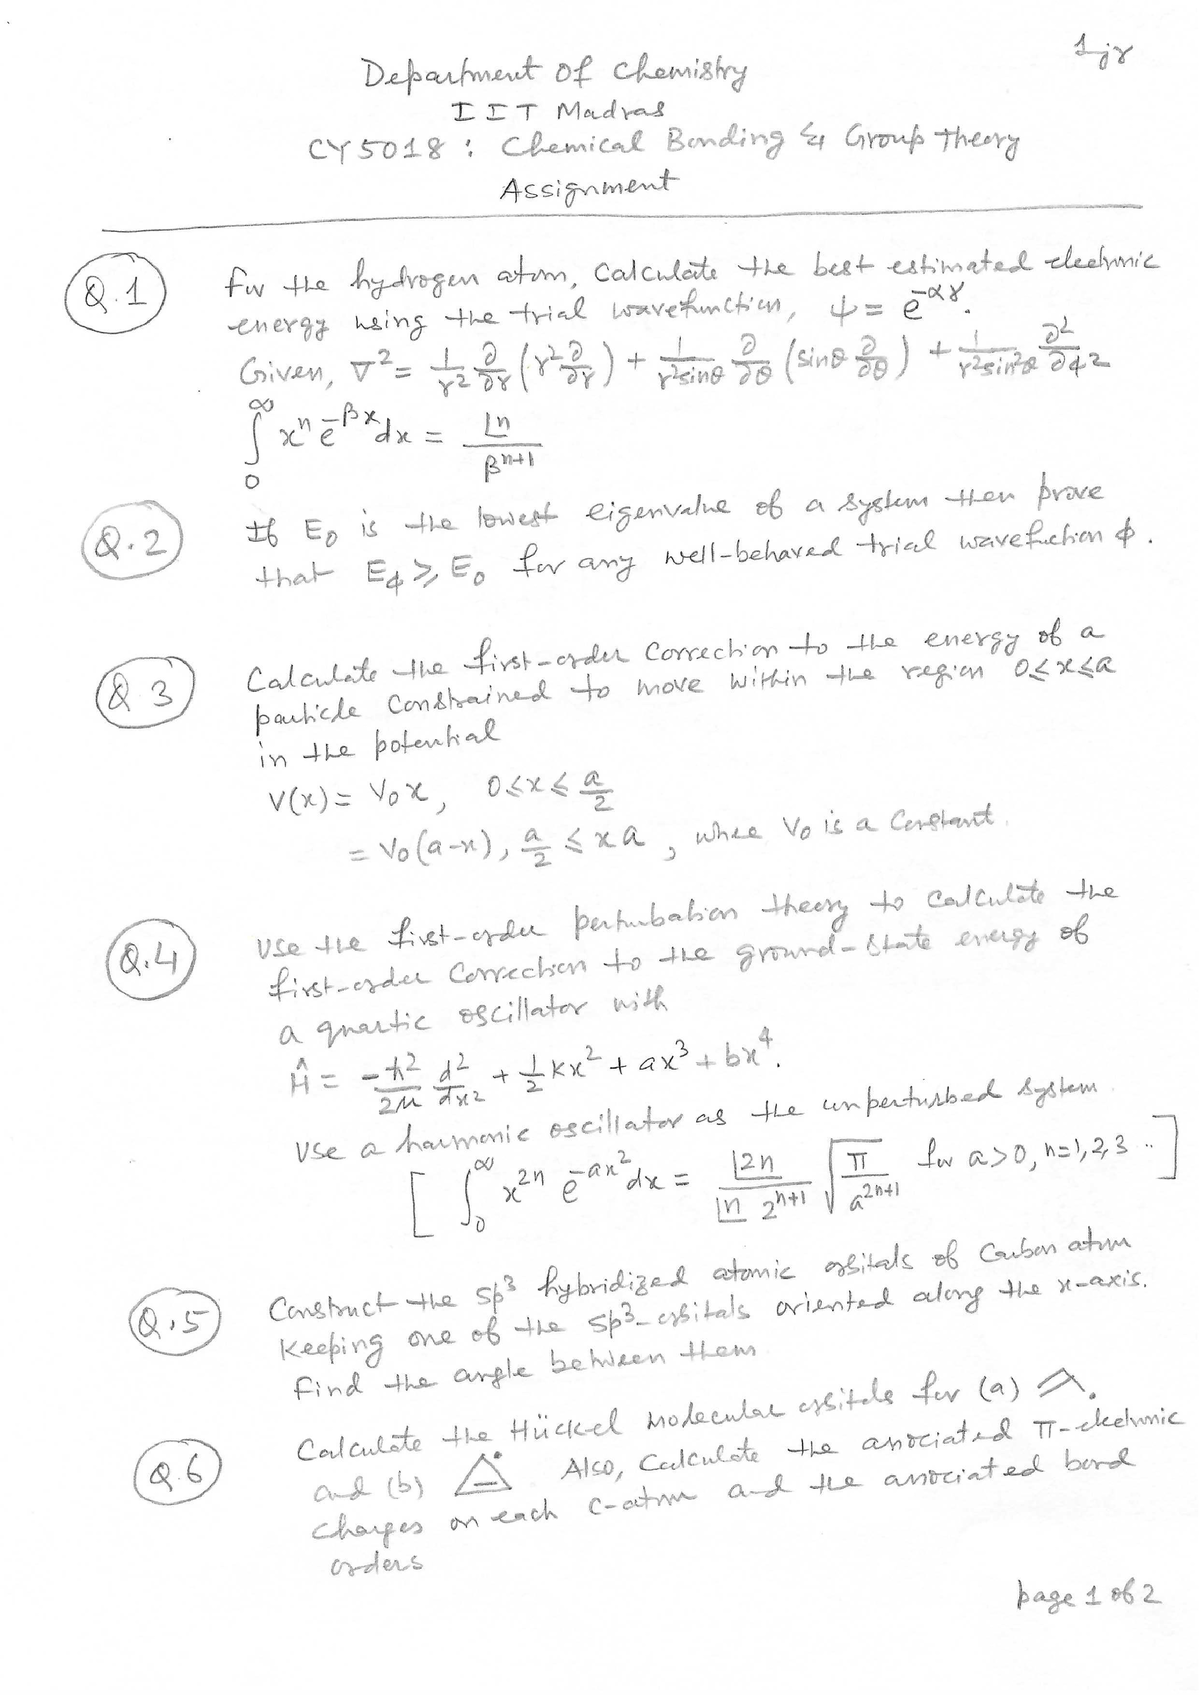 1jr
Department of Chemistry
IIT Madras
CY5018 : Chemical Bonding & Group Theory
Assignment
Q.1 For the hydrogen atom, Calculate the best estimated electronic
energy using the trial wavefunction, ψ = e^{-αr}.
Given, ∇² = 1/r² ∂/∂r (r² ∂/∂r) + 1/(r² sinθ) ∂/∂θ (sinθ ∂/∂θ) + 1/(r² sin²θ) ∂²/∂φ²
∫₀^∞ xⁿ e^{-βx} dx = |n / β^{n+1}
Q.2 If E₀ is the lowest eigenvalue of a system then prove
that E_φ ≥ E₀ for any well-behaved trial wavefuction φ.
Q.3 Calculate the first-order correction to the energy of a
particle constrained to move within the region 0≤x≤a
in the potential
V(x) = V₀x, 0≤x≤ a/2
= V₀(a-x), a/2 ≤ x a, whee V₀ is a Constant.
Q.4 Use the first-order perturbation theory to calculate the
first-order correction to the ground-state energy of
a quartic oscillator with
Ĥ = -ħ²/2μ d²/dx² + 1/2 kx² + ax³ + bx⁴.
Use a harmonic oscillator as the unperturbed system.
[ ∫₀^∞ x^{2n} e^{-ax²} dx = |2n / (|n 2^{2n+1}) √(π / a^{2n+1}) for a>0, n=1,2,3 .. ]
Q.5 Construct the sp³ hybridized atomic orbitals of Carbon atom
Keeping one of the sp³-orbitals oriented along the x-axis.
find the angle between them
Q.6 Calculate the Hückel molecular orbitals for (a)
and (b) Also, Calculate the associated π-electronic
charges on each C-atom and the associated bond
orders
page 1 of 2